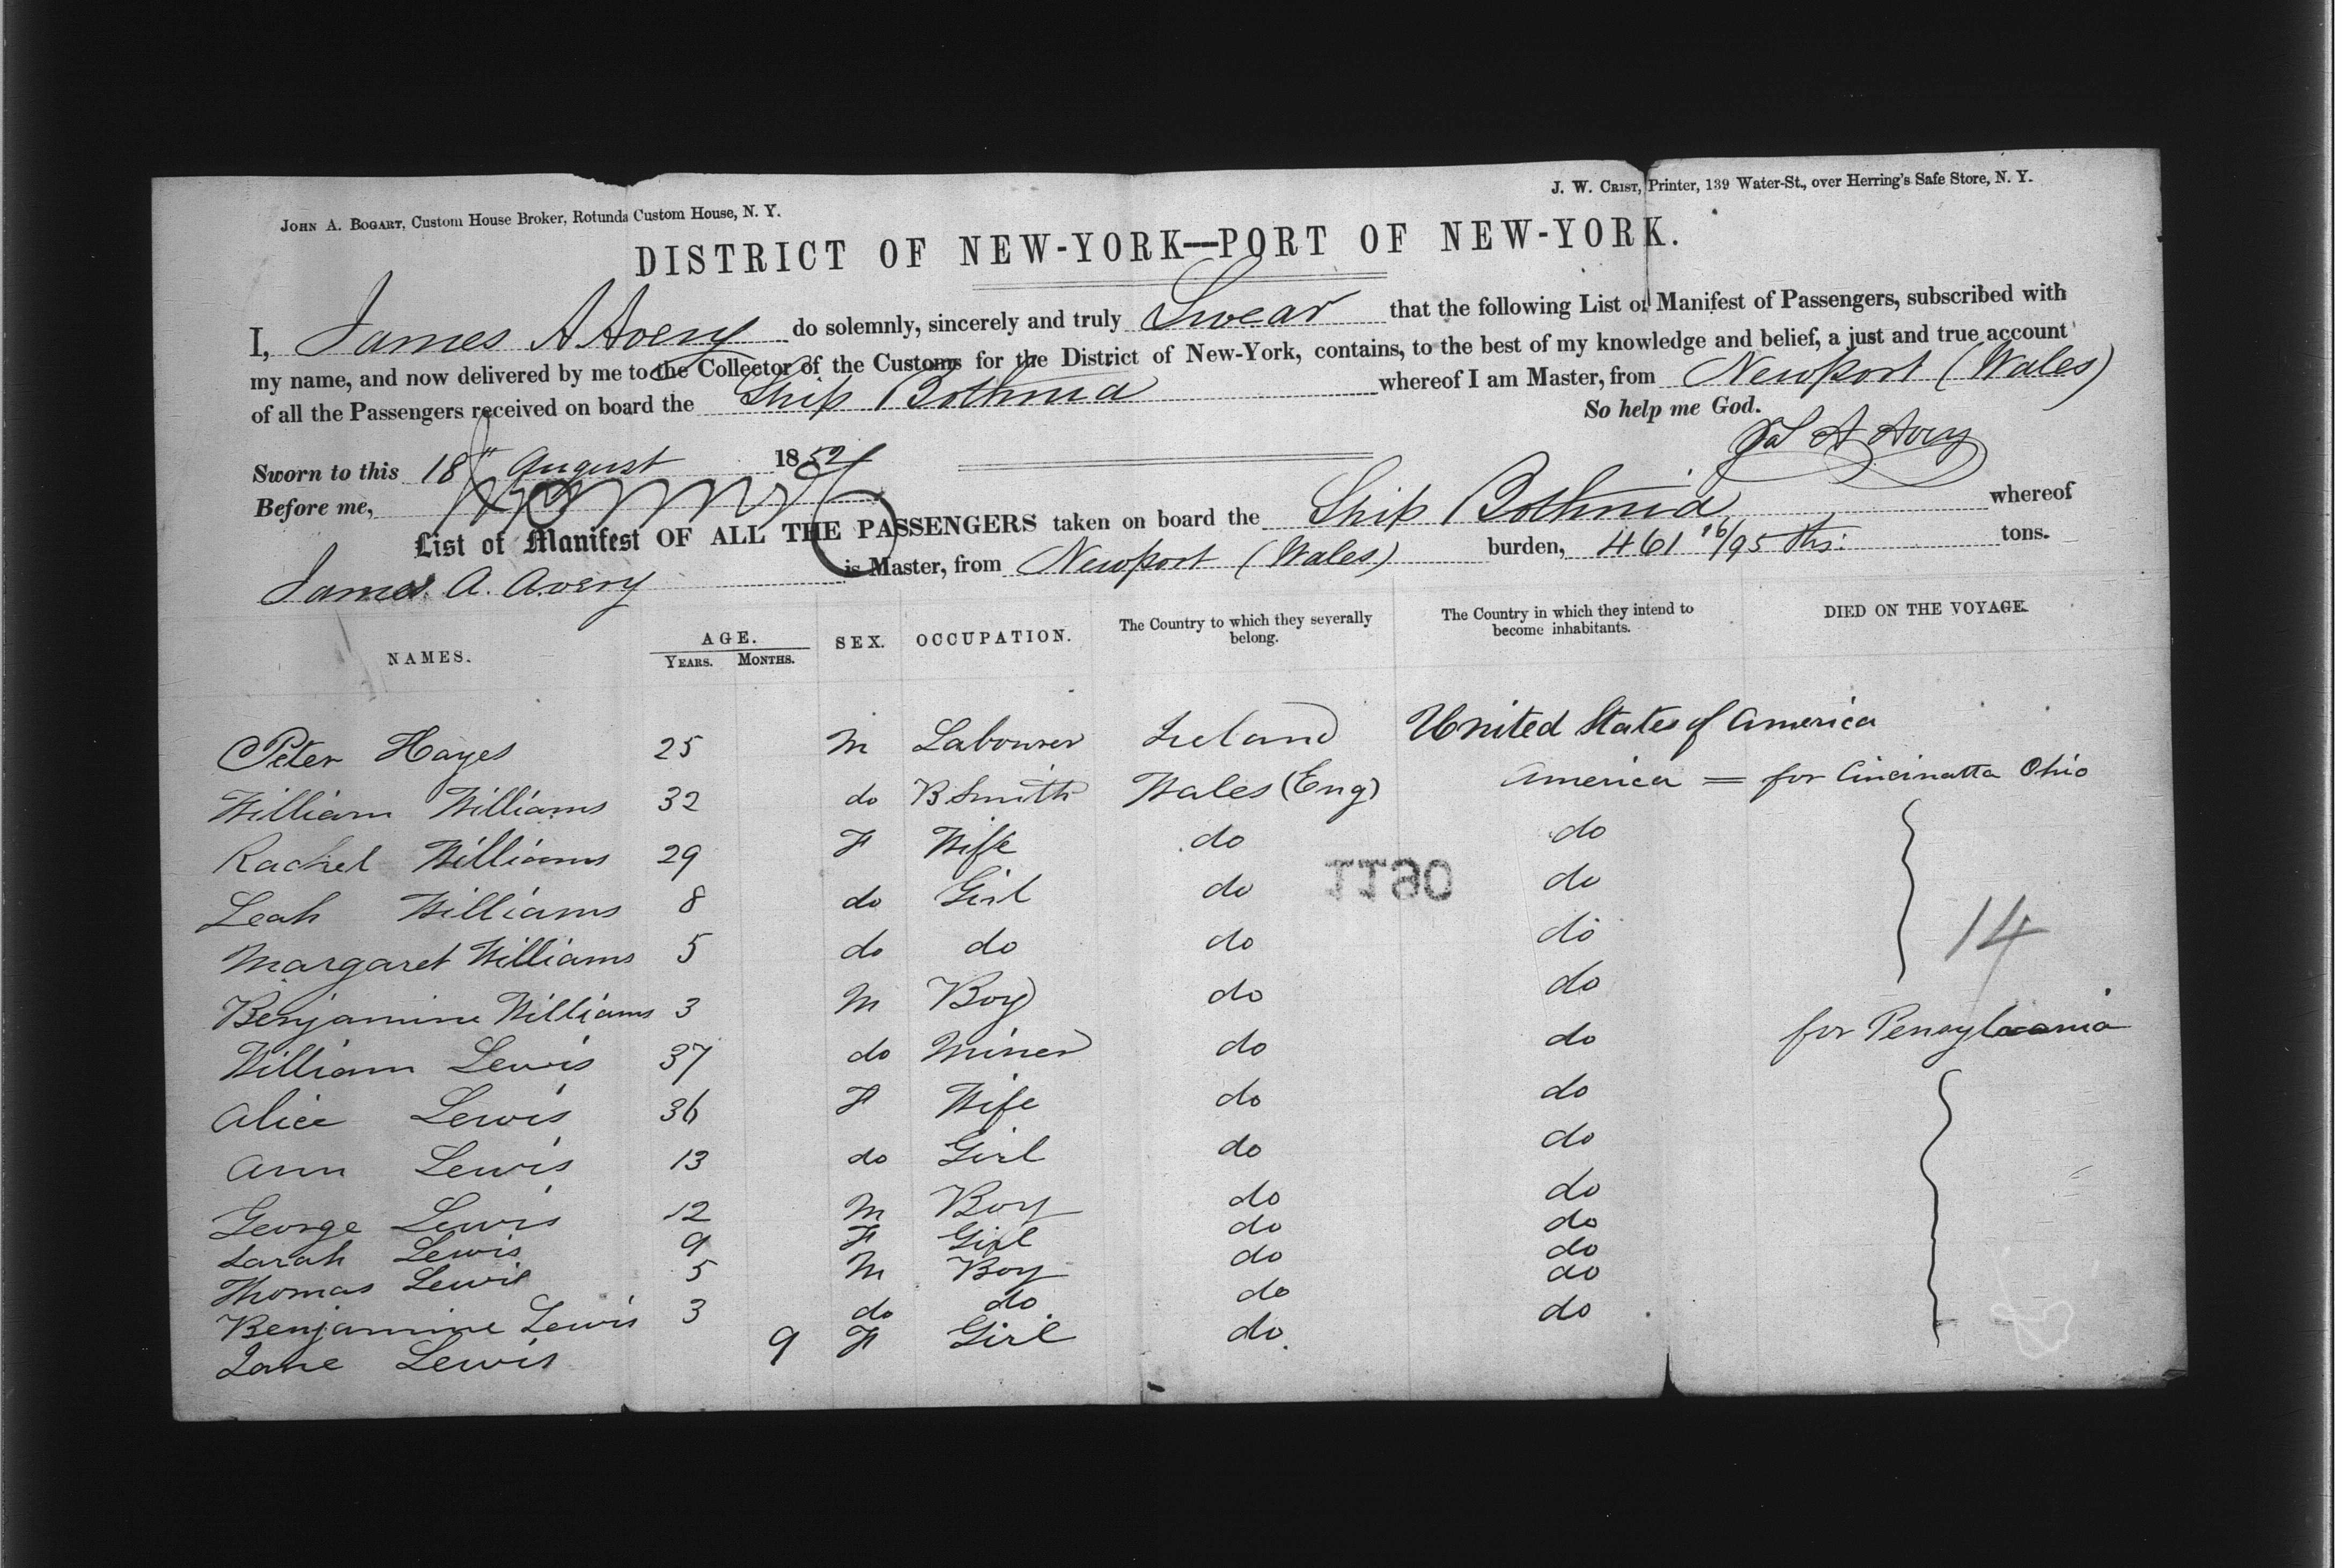 JOHN A. BOGART, Custom House Broker, Rotunda Custom House, N. Y.
J. W. CRIST, Printer, 139 Water-St., over Herring's Safe Store, N. Y.
DISTRICT OF NEW-YORK—PORT OF NEW-YORK.
I, James A Avery do solemnly, sincerely and truly Swear that the following List or Manifest of Passengers, subscribed with
my name, and now delivered by me to the Collector of the Customs for the District of New-York, contains, to the best of my knowledge and belief, a just and true account
of all the Passengers received on board the Ship Bothnia whereof I am Master, from Newport (Wales)
So help me God.
Sworn to this 18th August 1852
Jas A Avery
Before me,
List of Manifest OF ALL THE PASSENGERS taken on board the Ship Bothnia whereof
James A. Avery is Master, from Newport (Wales) burden, 461 16/95 ths: tons.
NAMES. AGE. SEX. OCCUPATION. The Country to which they severally belong. The Country in which they intend to become inhabitants. DIED ON THE VOYAGE.
YEARS. MONTHS.
Peter Hayes 25 M Labourer Ireland United States of America
William Williams 32 do B Smith Wales (Eng) America = for Cincinatta Ohio
Rachel Williams 29 F Wife do do
Leah Williams 8 do Girl do do
1190
Margaret Williams 5 do do do do
14
Benjamine Williams 3 M Boy do do
William Lewis 37 do Miner do do for Pensylvania
Alice Lewis 36 F Wife do do
Ann Lewis 13 do Girl do do
George Lewis 12 M Boy do do
Sarah Lewis 9 F Girl do do
Thomas Lewis 5 M Boy do do
Benjamine Lewis 3 do do do do
Jane Lewis 9 F Girl do. do